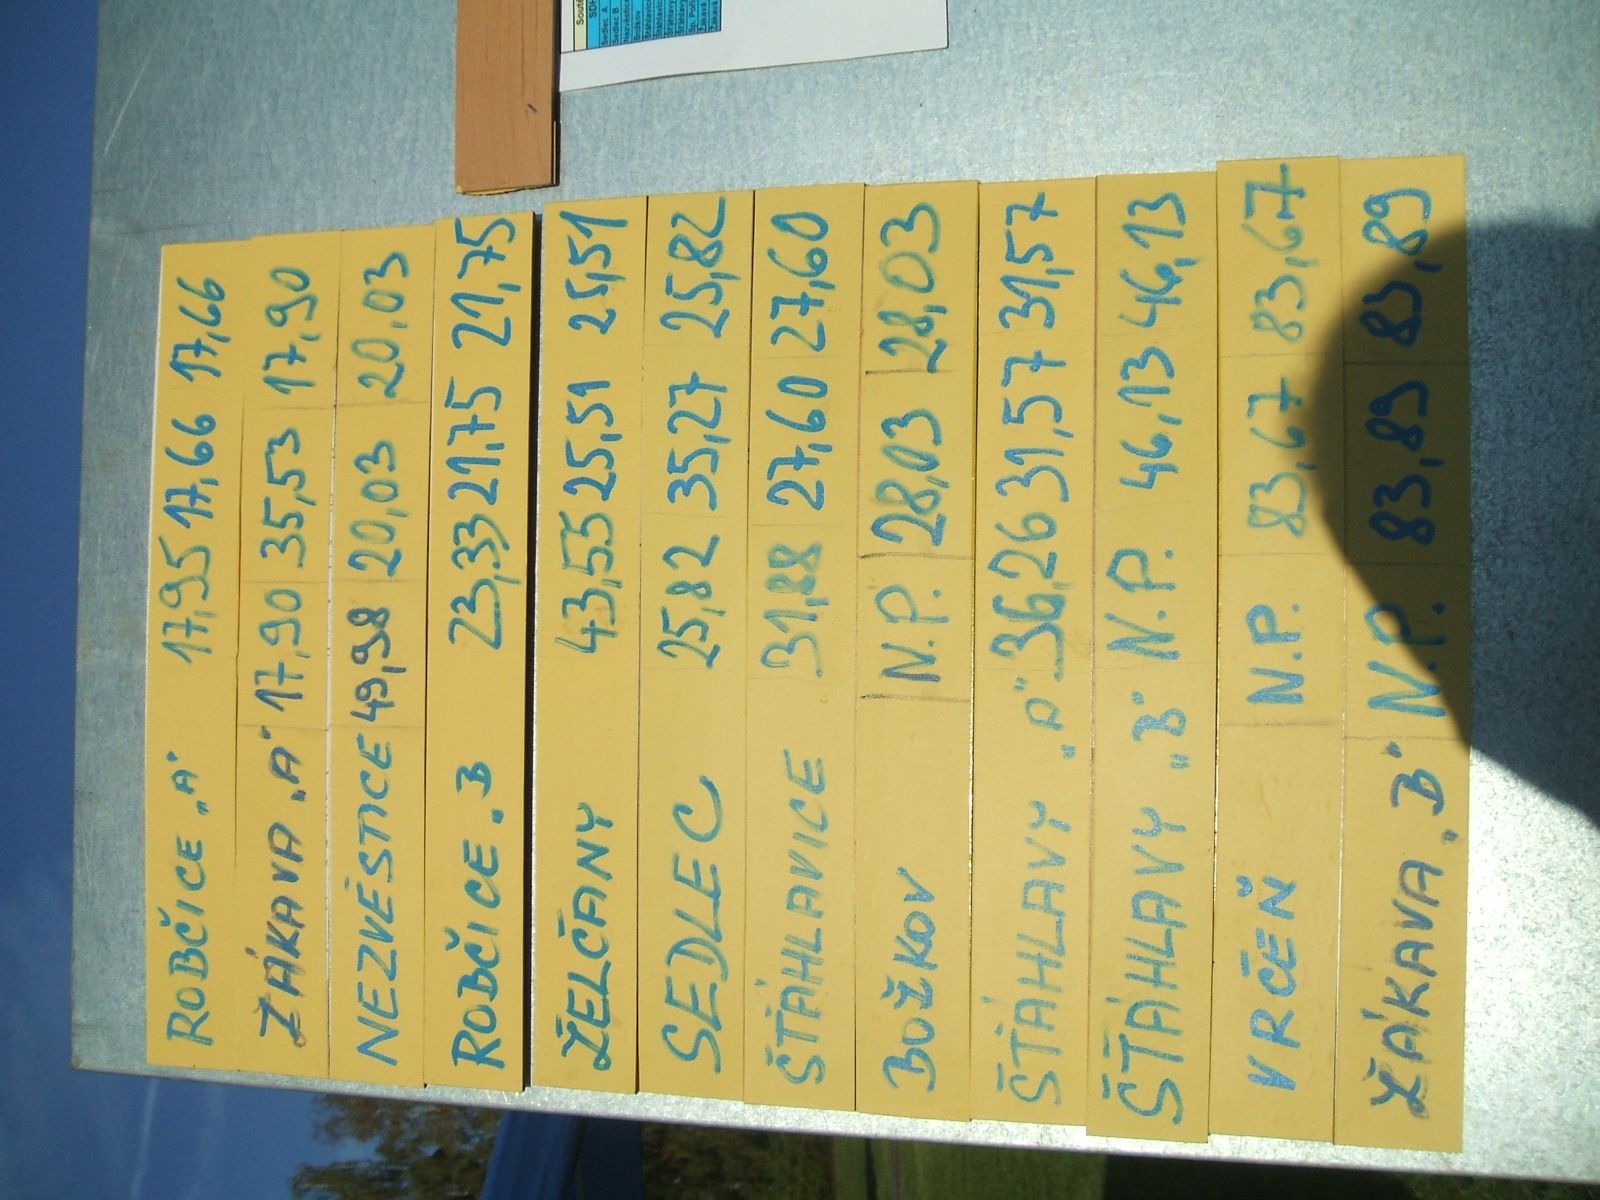 ROBČICE „A" 17,95 17,66 17,66
ŽÁKAVA „A" 17,90 35,53 17,90
NEZVĚSTICE 49,98 20,03 20,03
ROBČICE „B 23,33 21,75 21,75
ŽELČANY 43,55 25,51 25,51
SEDLEC 25,82 35,27 25,82
ŠŤÁHLAVICE 31,88 27,60 27,60
BOŽKOV N.P. 28,03 28,03
ŠŤÁHLAVY „A" 36,26 31,57 31,57
ŠŤÁHLAVY „B" N.P. 46,13 46,13
VRČEŇ N.P. 83,67 83,67
ŽÁKAVA „B" N.P. 83,89 83,89
Sedlec A
Sedlec B